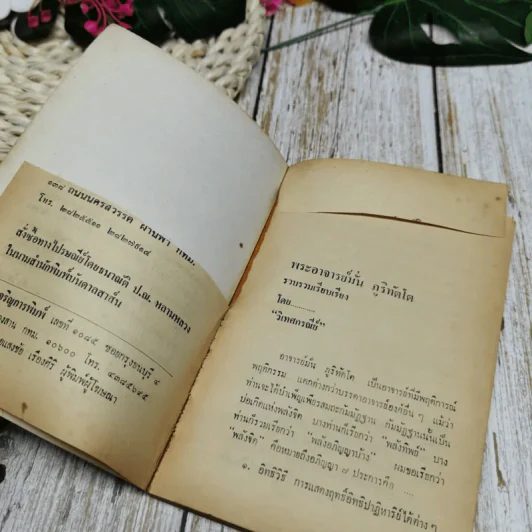 ๑๓๘ ถนนนครสวรรค์ ผ่านฟ้า กทม.
โทร. ๒๘๒๕๕๑๐ ๒๘๒๗๕๑๔
สั่งซื้อทางไปรษณีย์โดยธนาณัติ ป.ณ. หลานหลวง
ในนามสำนักพิมพ์บันดาลสาส์น
เจริญการพิมพ์ เลขที่ ๑๐๘๕ ซอยกรุงธนบุรี ๔
องสาน กทม. ๑๐๖๐๐ โทร.
ยแสงชัย เรืองศิริ ผู้พิมพ์ผู้โฆษณา
พระอาจารย์มั่น ภูริทัตโต
รวบรวมเรียบเรียง
โดย
"วิเทศกรณีย์"
อาจารย์มั่น ภูริทัตโต เป็นอาจารย์ที่มีพฤติการณ์
พฤติกรรม แตกต่างกว่าบรรดาอาจารย์องค์อื่น ๆ แม้ว่า
ท่านจะได้บำเพ็ญเพียรสมถะกัมมัฏฐาน กัมมัฏฐานนั้นเป็น
บ่อเกิดแห่งพลังจิต บางท่านก็เรียกว่า "พลังทิพย์" บาง
ท่านก็รวมเรียกว่า "พลังอภิญญาบ้าง" ผมขอเรียกว่า
"พลังจิต" คือหมายถึงอภิญญา ๗ ประการคือ
๑. อิทธิวิธี การแสดงฤทธิ์อิทธิปาฏิหาริย์ได้ต่างๆ